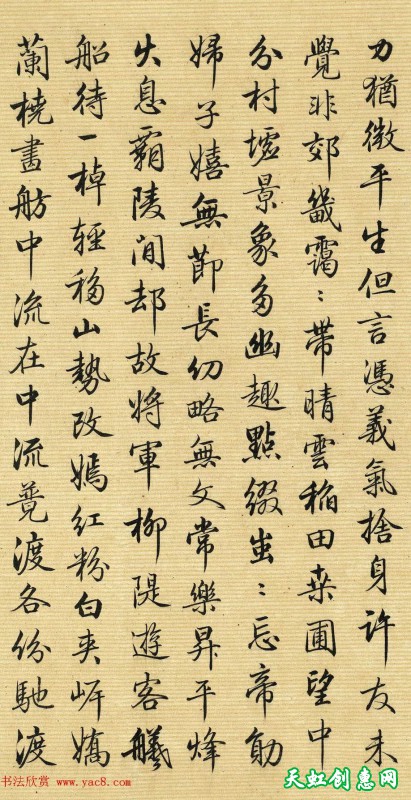 力猶微平生但言憑義氣捨身許友未
覺非郊畿靄〻帶晴雲稻田桒圃望中
分村墟景象多幽趣點綴蚩〻忘帝勛
婦子嬉無節長幼略無文常樂昇平烽
火息霸陵閒却故將軍柳隄遊客艤
船待一棹輕移山勢改嫣紅粉白夾岸嬌
蘭橈畫舫中流在中流競渡各份馳渡
书法欣赏 www.yac8.com
天虹创惠网